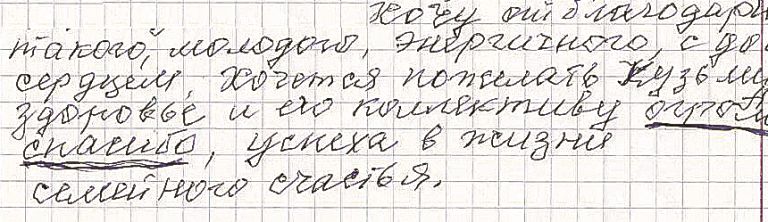 Хочу отблагодари
такого, молодого, энергичного, с до
сердцем, Хочется пожелать Кузьми
здоровье и его коллективу огром
спасибо, успеха в жизни
семейного счастья.